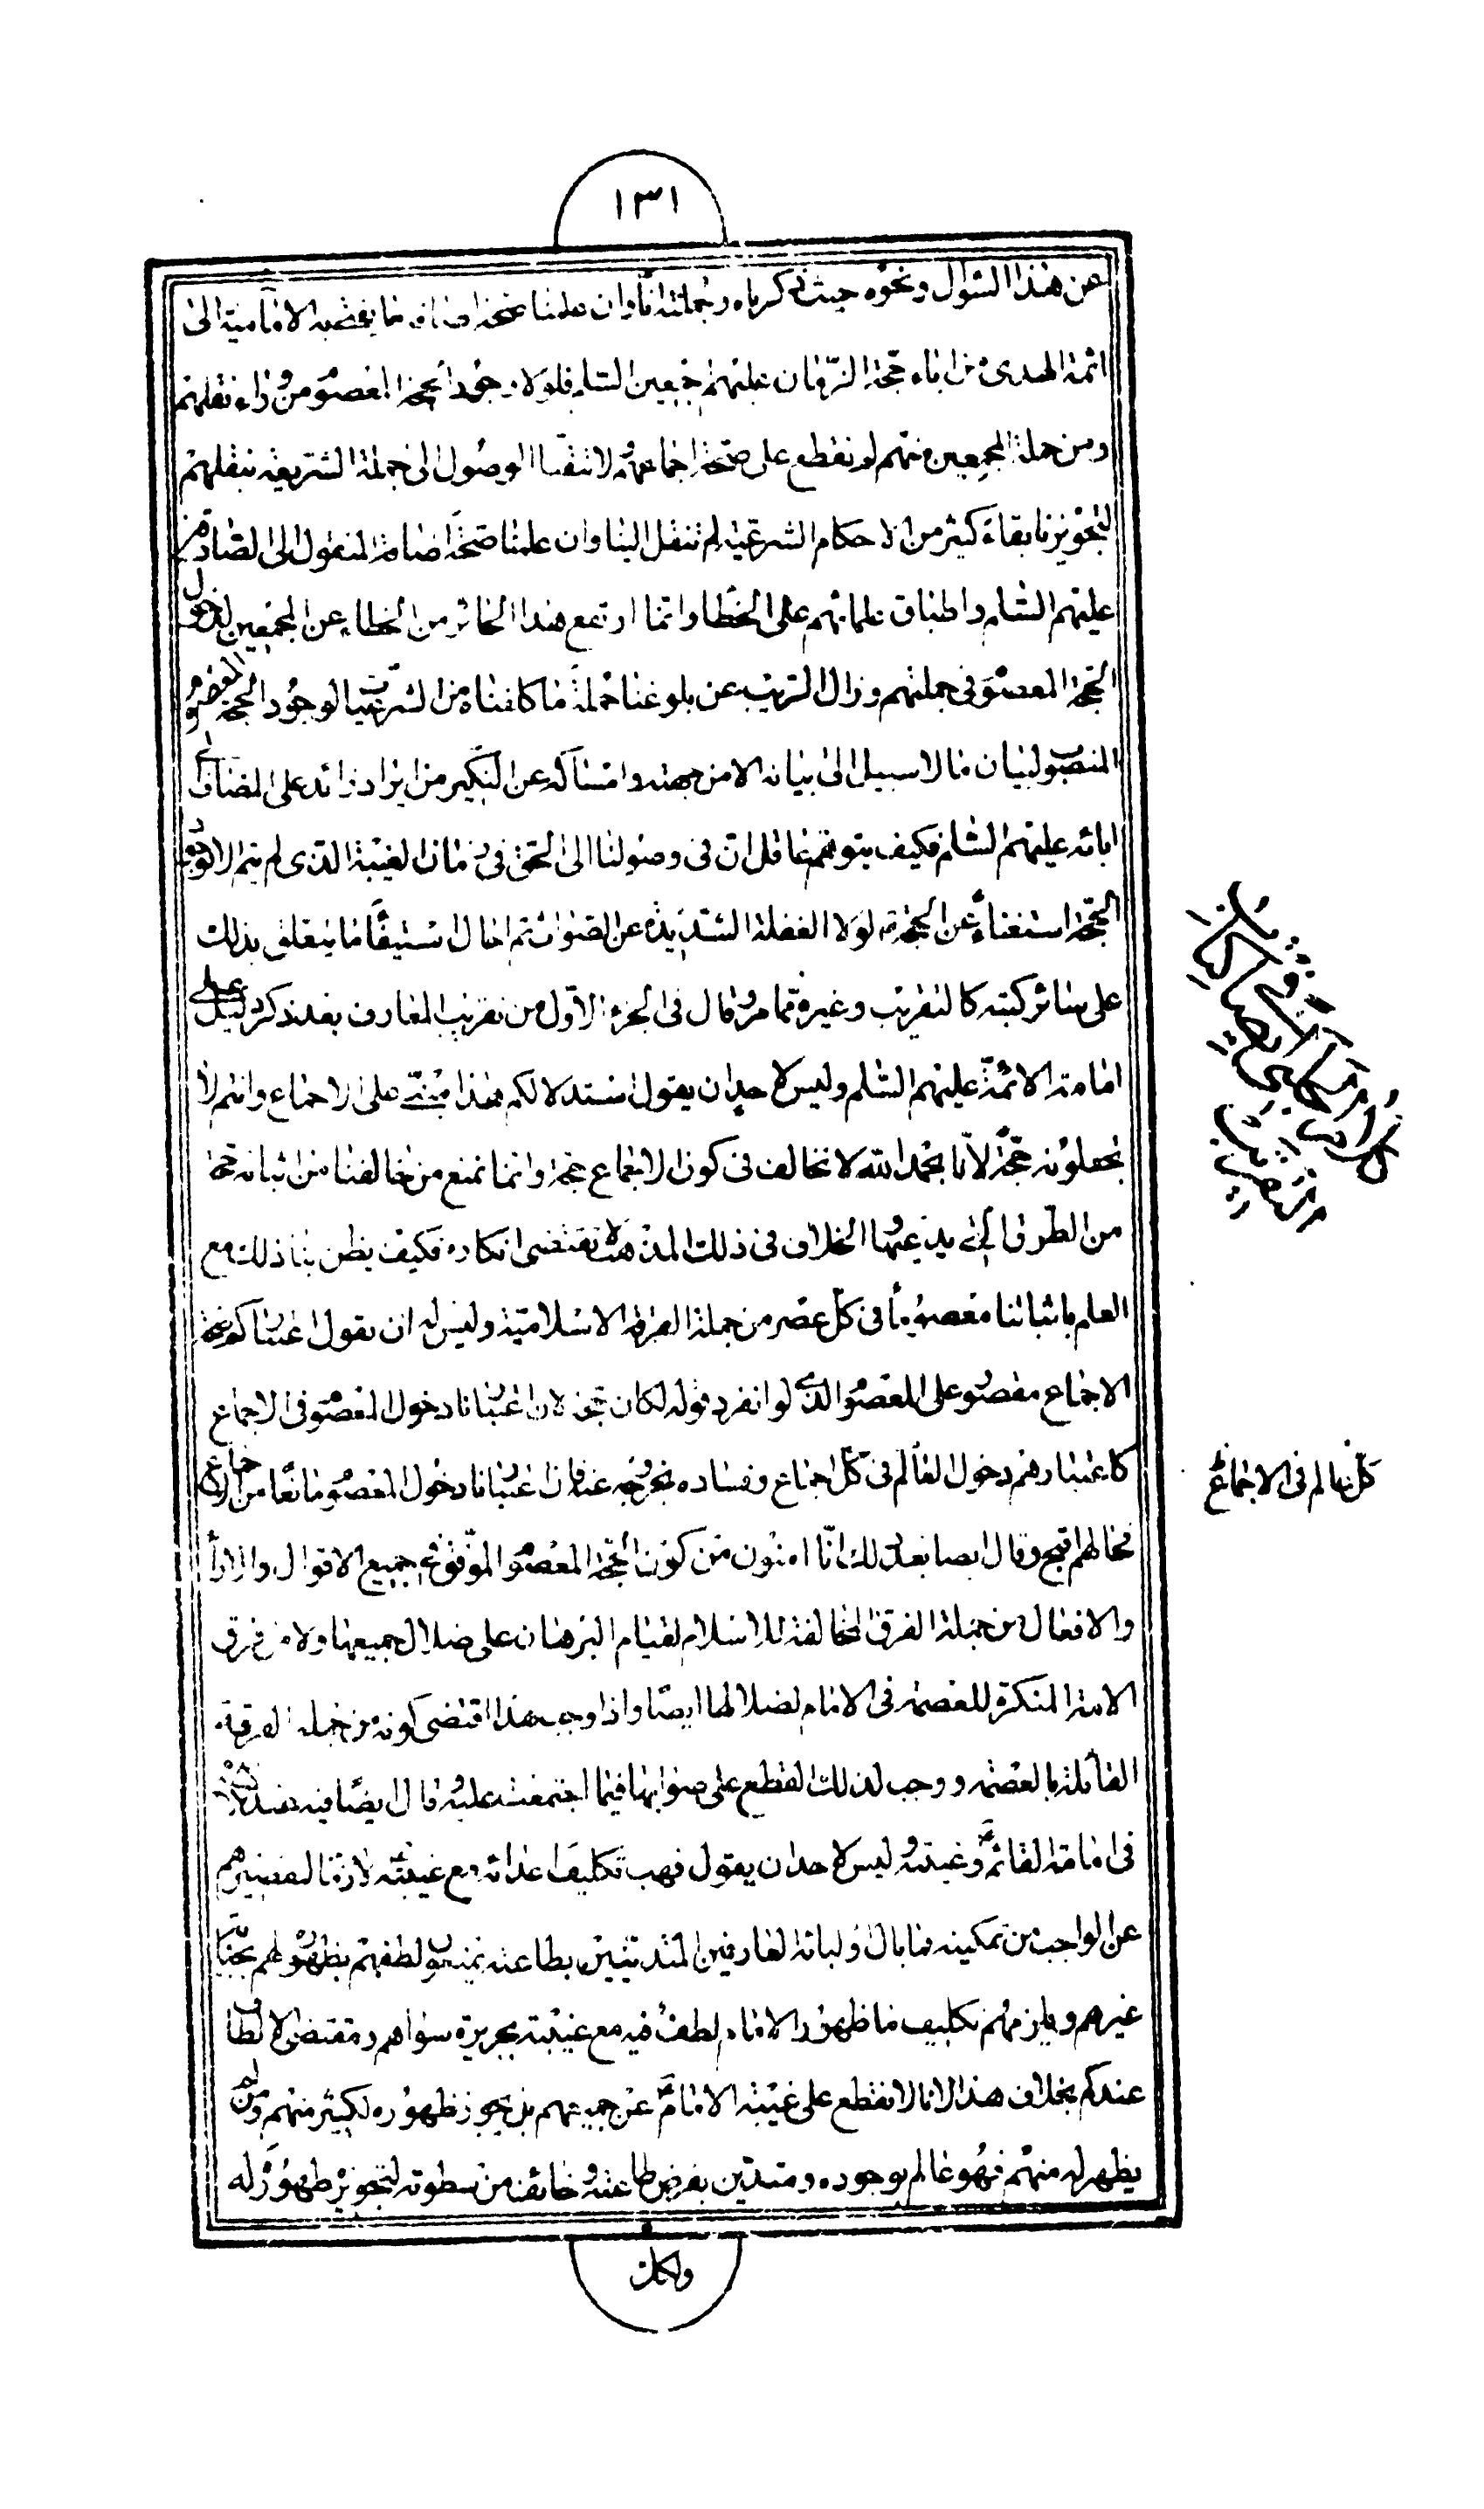 ١٣١
عن هذا السؤال ونحوه حيث ذكرناه وجملته انا وان علمنا صحة اضافة ما يفضيه الامامية الى
ائمة الهدى من اباء حجة الزمان عليهم اجمعين السلم فلولا وجود الحجة المعصوم من وراء نقلهم
ومن جملة المجمعين منهم لم نقطع على صحة اجماعهم ولا نثق الوصول الى جملة الشريعة بنقلهم
لتجويزنا بقاء كثير من الاحكام الشرعية لم تنقل الينا وان علمنا صحة اضافة المنقول الى الصادقين
عليهم السلم واطباق علمائهم على الخطا وانما ارتفع هذا الجائز من الخطاء عن المجمعين لدخول
الحجة المعصوم في جملتهم وزال الريب عن بلوغنا جملة ما كلفناه من الشرعيات لوجود الحجة المعصوم
المنصوب لبيان ما لا سبيل الى بيانه الا من جهته وامساكه عن النكير من ايراد زائد على المضاف الى
ابائه عليهم السلم فكيف يتوهم عاقل ان في وصولنا الى الحق في زمان الغيبة الذي لم يتم الا بوجود
الحجة استغناء عن الحجة لولا الغفلة الشديدة عن الصواب ثم احال مستيفا ما يتعلق بذلك
على سائر كتبه كالتقريب وغيره مما مر وقال في الجزء الاول من تقريب المعارف بعد ذكر دليل على
امامة الائمة عليهم السلم وليس لاحد ان يقول استدلالكم هذا مبني على الاجماع وانتم لا
تجعلونه حجة لانا بحمد الله لا نخالف في كون الاجماع حجة وانما نمنع من خالفنا من اثباته حجة
من الطرق التي يدعيها الخلاف في ذلك المذهب لا تقتضى انكاره فكيف يظن بنا ذلك مع
العلم باثباتنا معصوما في كل عصر من جملة الفرقة الاسلامية وليس له ان يقول اعتباركم صحة
الاجماع مقصور على المعصوم الذي لو انفرد قوله لكان حجة لان اعتبارنا دخول المعصوم في الاجماع
كاعتبارهم دخول العالم في كل اجماع وفساده بخروجه عنه فان اعتبارنا دخول المعصوم مانعا من اجماع
فحالهم اقبح وقال ايضا بعد ذلك انا امنون من كون الحجة المعصوم الموفوق في جميع الاقوال والاراء
والافعال من جملة الفرق المخالفة للاسلام لقيام البرهان على ضلال جميعها ولا من فرق
الامة المنكرة للعصمة في الامام لضلالها ايضا واذا وجب هذا اقتضى كونه من جملة الفرقة
القائلة بالعصمة ووجب لذلك القطع على صوابها فيما اجتمعت عليه وقال ايضا فيه عند
في امامة القائم وغيبته وليس لاحد ان يقول فهب تكليف اعدائه مع غيبته لازما لتقصيرهم
عن الواجب من تمكينه فما بال اوليائه العارفين المتدينين بطاعته يمنعون لطفهم بظهوره لهم بجناية
غيرهم ويلزمهم تكليف ما ظهور الامام لطف فيه مع غيبته بجريرة سواهم ومقتضى الالطاف
عندكم بخلاف هذا لانا لا نقطع على غيبة الامام عن جميعهم بل يجوز ظهوره لكثير منهم ومن لم
يظهر له منهم فهو عالم بوجوده ومتدين بفرض طاعته وخائف من سطوته لتجويز ظهوره له
كل عالم في الاجماع
ولكل